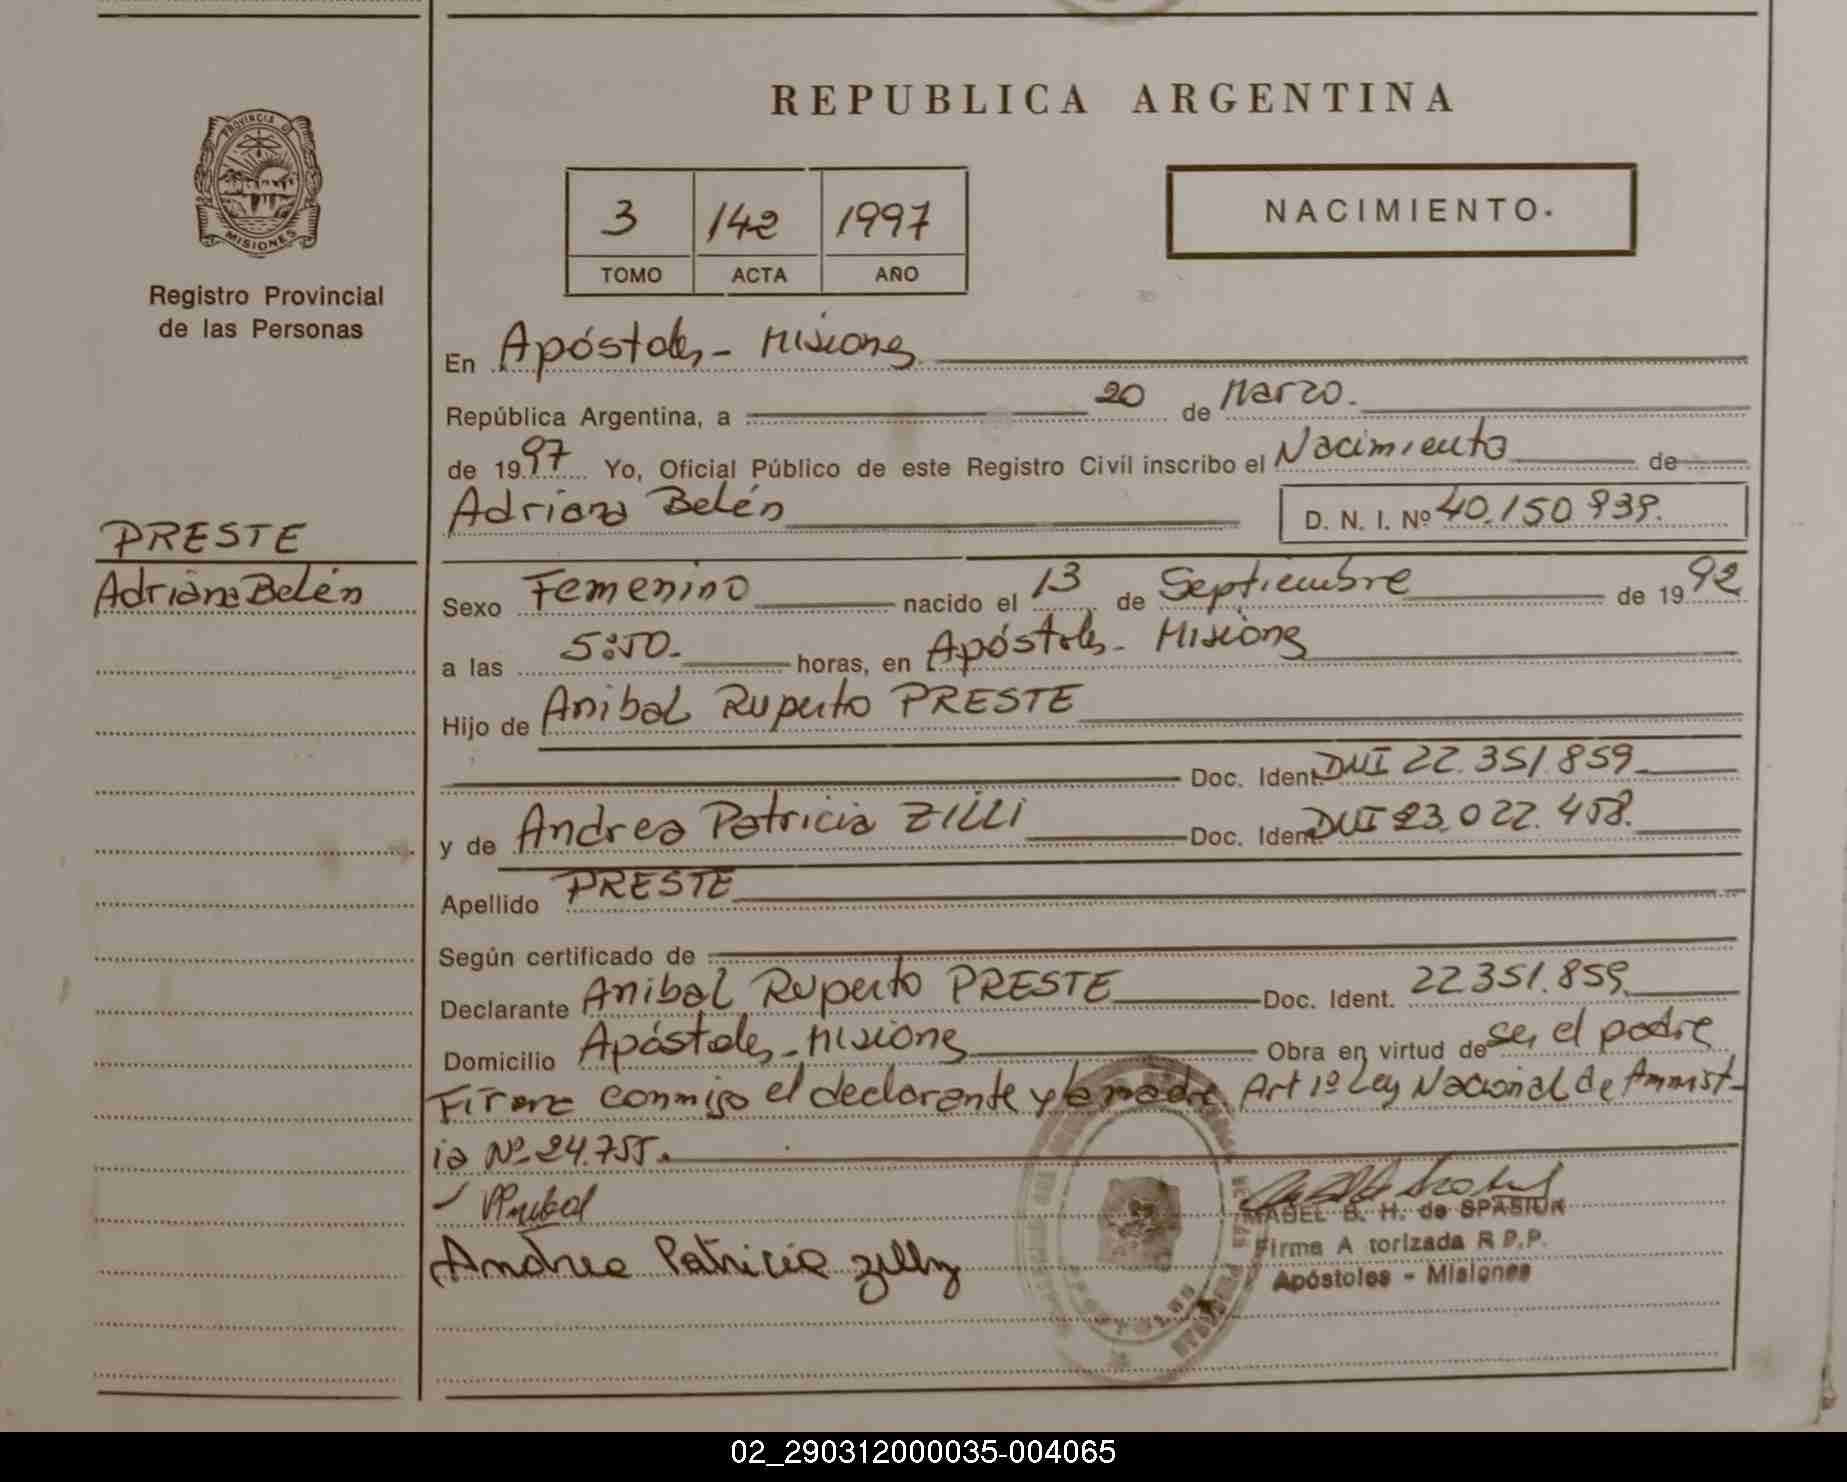 REPUBLICA ARGENTINA
PROVINCIA DE
MISIONES
Registro Provincial
de las Personas
3 142 1997
TOMO ACTA AÑO
NACIMIENTO.
En Apóstoles - Misiones
República Argentina, a 20 de Marzo.
de 1997 Yo, Oficial Público de este Registro Civil inscribo el Nacimiento de
Adriana Belén D. N. I. Nº 40.150.939.
PRESTE
Adriana Belén
Sexo Femenino nacido el 13 de Septiembre de 1992
a las 5:50. horas, en Apóstoles - Misiones
Hijo de Anibal Ruperto PRESTE
Doc. Ident. DNI 22.351.859
y de Andrea Patricia ZILLI Doc. Ident. DNI 23.022.458.
Apellido PRESTE
Según certificado de
Declarante Anibal Ruperto PRESTE Doc. Ident. 22.351.859.
Domicilio Apóstoles - Misiones Obra en virtud de ser el padre
Firma conmigo el declarante y la madre. Art 1º Ley Nacional de Amnist-
ia Nº 24.755.
MABEL B. H. de SPASIUK
Andrea Patricia Zilly
Firma A torizada R.P.P.
Apóstoles - Misiones
02_290312000035-004065